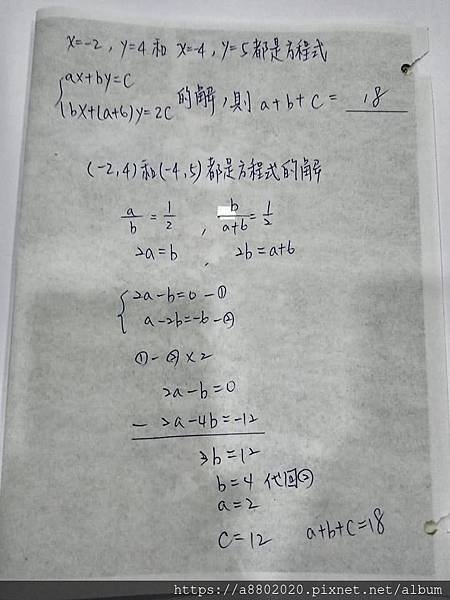 x=-2, y=4 和 x=-4, y=5 都是方程式
{ax+by=c
bx+(a+6)y=2c 的解,則 a+b+c= 18
(-2,4)和(-4,5)都是方程式的解
a/b = 1/2 , b/a+6 = 1/2
2a=b , 2b=a+6
{2a-b=0-①
a-2b=-6-②
①-②×2
2a-b=0
- 2a-4b=-12
3b=12
b=4 代回②
a=2
c=12 a+b+c=18
https://a8802020.pixnet.net/album